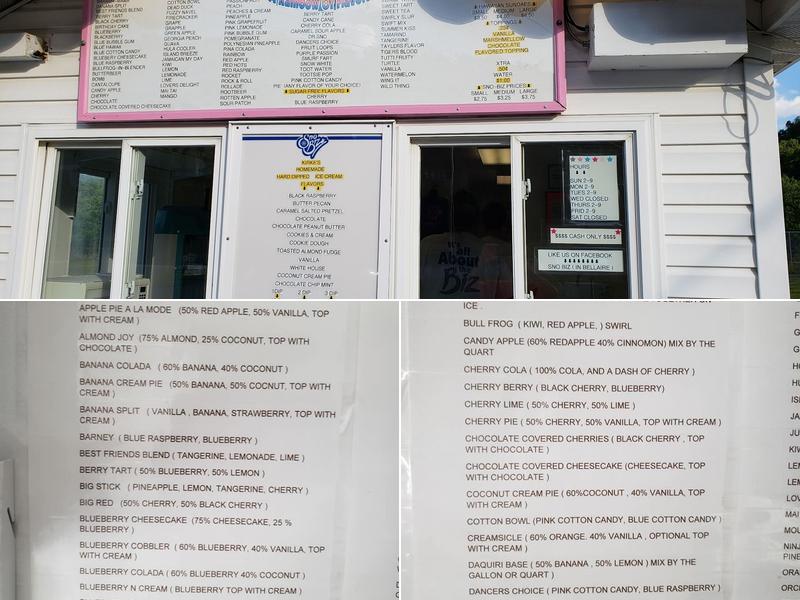 BERRY TART
BLACK CHERRY
BIRTHDAY CAKE
BLUEBERRY
BLACKBERRY
BLUE BUBBLE GUM
BLUE HAWAII
BLUE COTTON CANDY
BLUEBERRY CHEESECAKE
BLUE RASPBERRY
BULLFROG-IN-BLENDER
BUTTERBEER
CANTALOUPE
CANDY APPLE
CHERRY
CHOCOLATE
CHOCOLATE COVERED CHEESECAKE
COTTON BOWL
DEAD DUCK
FUZZY NAVEL
FIRECRACKER
GRAPE
GRASSHOPPER
GREEN APPLE
GEORGIA PEACH
GUAVA
HULA COOLER
ISLAND BREEZE
JAMAICAN MY DAY
KIWI
LEMON
LEMONADE
LIME
LOVERS DELIGHT
MAI TAI
MANGO
PEACH
PEACHES & CREAM
PINEAPPLE
PINK GRAPEFRUIT
PINK LEMONADE
PINK BUBBLE GUM
POMEGRANATE
POLYNESIAN PINEAPPLE
PINA COLADA
RAINBOW
RED APPLE
RED HOTS
RED RASPBERRY
ROCKET
ROCK & ROLL
ROLLADE
ROOTBEER
ROTTEN APPLE
SOUR PATCH
BERRY TART
CANDY CANE
CHERRY COLA
CARAMEL SOUR APPLE
DR.SNO
DANCERS CHOICE
FRUIT LOOPS
PURPLE PASSION
SMURF TART
SNOW WHITE
TOOT WATER
TOOTSIE POP
PINK COTTON CANDY
PIE (ANY FLAVOR OF YOUR CHOICE)
SUGAR FREE FLAVORS
CHERRY
BLUE RASPBERRY
SWEET TART
SWEET TEA
SWIRLY SLUR
SWIFT MIX
SUMMER KISS
TAMARIND
TANGERINE
TAYLERS FLAVOR
TIGERS BLOOD
TUTTI FRUTTI
TURTLE
VANILLA
WATERMELON
WING IT
WILD THING
HAWAIIAN SUNDAES
SMALL MEDIUM LARGE
TOPPINGS
.25¢
VANILLA
MARSHMELLOW
CHOCOLATE
FLAVORED TOPPING
XTRA
.50¢
WATER
$1.00
SNO-BIZ PRICES
SMALL MEDIUM LARGE
$2.75 $3.25 $3.75
Sno Biz
KIRKE'S
HOMEMADE
HARD DIPPED ICE CREAM
FLAVORS
BLACK RASPBERRY
BUTTER PECAN
CARAMEL SALTED PRETZEL
CHOCOLATE
CHOCOLATE PEANUT BUTTER
COOKIES & CREAM
COOKIE DOUGH
TOASTED ALMOND FUDGE
VANILLA
WHITE HOUSE
COCONUT CREAM PIE
CHOCOLATE CHIP MINT
1DIP 2 DIP 3 DIP
It's
all
About
the
Biz
HOURS
SUN 2-9
MON 2-9
TUES 2-9
WED CLOSED
THURS 2-9
FRID 2-9
SAT CLOSED
$$$$ CASH ONLY $$$$
LIKE US ON FACEBOOK
SNO BIZ ( IN BELLAIRE )
APPLE PIE A LA MODE (50% RED APPLE, 50% VANILLA, TOP
WITH CREAM )
ALMOND JOY (75% ALMOND, 25% COCONUT, TOP WITH
CHOCOLATE )
BANANA COLADA ( 60% BANANA, 40% COCONUT )
BANANA CREAM PIE (50% BANANA, 50% COCNUT, TOP WITH
CREAM )
BANANA SPLIT ( VANILLA , BANANA, STRAWBERRY, TOP WITH
CREAM )
BARNEY ( BLUE RASPBERRY, BLUEBERRY )
BEST FRIENDS BLEND ( TANGERINE, LEMONADE, LIME )
BERRY TART ( 50% BLUEBERRY, 50% LEMON )
BIG STICK ( PINEAPPLE, LEMON, TANGERINE, CHERRY )
BIG RED (50% CHERRY, 50% BLACK CHERRY )
BLUEBERRY CHEESECAKE (75% CHEESECAKE, 25 %
BLUEBERRY )
BLUEBERRY COBBLER ( 60% BLUEBERRY, 40% VANILLA, TOP
WITH CREAM )
BLUEBERRY COLADA ( 60% BLUEBERRY 40% COCONUT )
BLUEBERRY N CREAM ( BLUEBERRY TOP WITH CREAM )
ICE .
BULL FROG ( KIWI, RED APPLE, ) SWIRL
CANDY APPLE (60% REDAPPLE 40% CINNOMON) MIX BY THE
QUART
CHERRY COLA ( 100% COLA, AND A DASH OF CHERRY )
CHERRY BERRY ( BLACK CHERRY, BLUEBERRY)
CHERRY LIME ( 50% CHERRY, 50% LIME )
CHERRY PIE ( 50% CHERRY, 50% VANILLA, TOP WITH CREAM )
CHOCOLATE COVERED CHERRIES ( BLACK CHERRY , TOP
WITH CHOCOLATE )
CHOCOLATE COVERED CHEESECAKE (CHEESECAKE, TOP
WITH CHOCOLATE )
COCONUT CREAM PIE ( 60%COCONUT , 40% VANILLA, TOP
WITH CREAM )
COTTON BOWL (PINK COTTON CANDY, BLUE COTTON CANDY )
CREAMSICLE ( 60% ORANGE. 40% VANILLA , OPTIONAL TOP
WITH CREAM )
DAQUIRI BASE ( 50% BANANA , 50% LEMON ) MIX BY THE
GALLON OR QUART )
DANCERS CHOICE ( PINK COTTON CANDY, BLUE RASPBERRY )